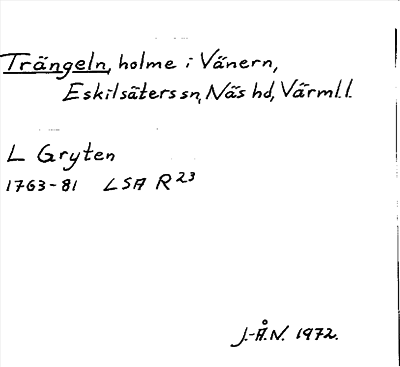 Trängeln, holme i Vänern,
Eskilsäters sn, Näs hd, Värml. l.
L Gryten
1763-81 LSA R 23
J.-Å.N. 1972.